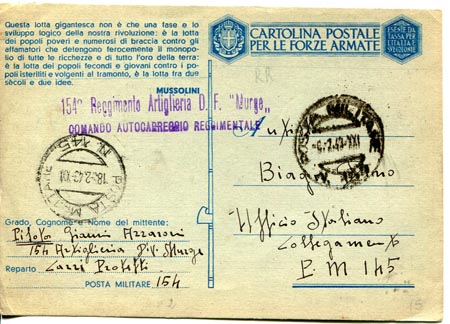 Questa lotta gigantesca non è che una fase e lo
sviluppo logico della nostra rivoluzione: è la lotta
dei popoli poveri e numerosi di braccia contro gli
affamatori che detengono ferocemente il monopo-
lio di tutte le ricchezze e di tutto l'oro della terra:
è la lotta dei popoli fecondi e giovani contro i po-
poli isteriliti e volgenti al tramonto, è la lotta fra due
secoli e due idee.
MUSSOLINI
CARTOLINA POSTALE
PER LE FORZE ARMATE
ESENTE DA
TASSA PER
L'ITALIA E
154° Reggimento Artiglieria D. F. "Murge"
COMANDO AUTOCARREGGIO REGGIMENTALE
POSTA MILITARE N. 145
18-2-43-XXI
POSTA MILITARE
Ufficio Italiano
Collegamento
P.M 145
Grado, Cognome e Nome del mittente:
Gianni Azzaroni
154 Artiglieria Div. Murge
Reparto Carri Protetti
POSTA MILITARE 154